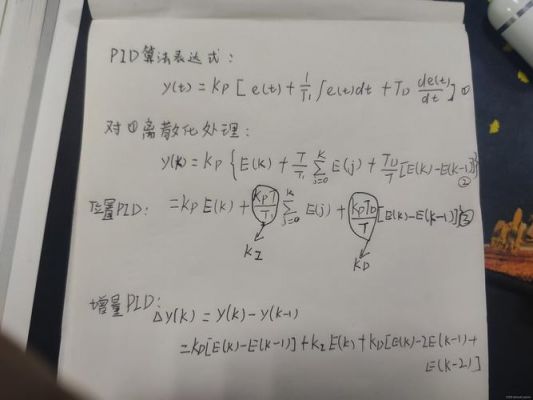 PID算法表达式:
y(t) = Kp [ e(t) + 1/T₁ ∫e(t)dt + TD de(t)/dt ] ①
对①离散化处理:
y(k) = Kp { E(k) + T/T₁ Σ(j=0→k) E(j) + TD/T [E(k)-E(k-1)] } ②
位置PID: = Kp E(k) + KpT/T₁ Σ(j=0→k) E(j) + KpTD/T [E(k)-E(k-1)] ③
KI KD
增量PID:
Δy(k) = y(k) - y(k-1)
= Kp[E(k)-E(k-1)] + KI E(k) + KD[E(k)-2E(k-1)+
E(k-2)]